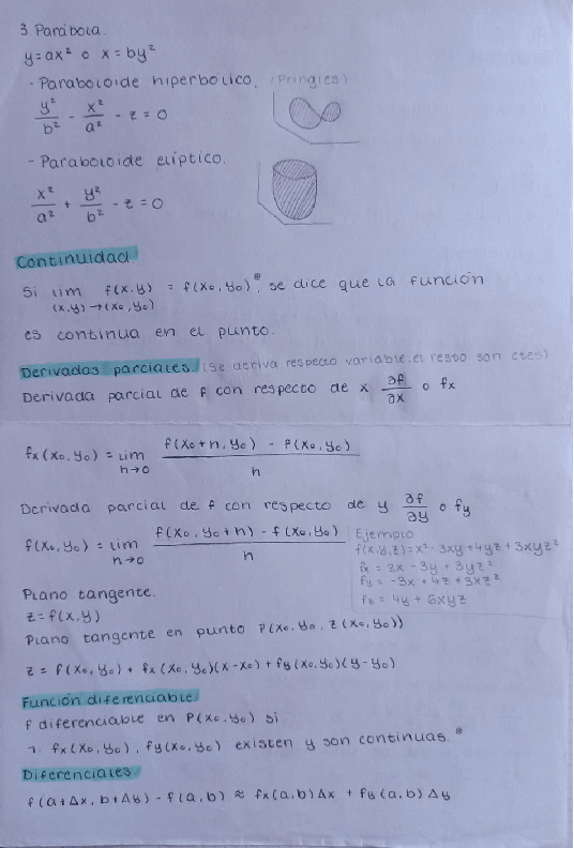 3 Parábola.
y=ax² o x=by²
- Paraboloide hiperbólico. (Pringles)
y²/b² - x²/a² - z = 0
- Paraboloide elíptico.
x²/a² + y²/b² - z = 0
Continuidad.
Si lim (x,y)→(x₀,y₀) f(x,y) = f(x₀,y₀)®, se dice que la función
es continua en el punto.
Derivadas parciales. (Se deriva respecto variable, el resto son ctes)
Derivada parcial de f con respecto de x ∂f/∂x o fx
fx(x₀,y₀) = lim h→0 f(x₀+h, y₀) - f(x₀,y₀) / h
Derivada parcial de f con respecto de y ∂f/∂y o fy
f(x₀,y₀) = lim h→0 f(x₀, y₀+h) - f(x₀,y₀) / h
Ejemplo
f(x,y,z)=x²-3xy+4yz+3xyz²
fx = 2x - 3y + 3yz²
fy = -3x + 4z + 3xz²
fz = 4y + 6xyz
Plano tangente.
z=f(x,y)
Plano tangente en punto P(x₀,y₀, z(x₀,y₀))
z = f(x₀,y₀) + fx(x₀,y₀)(x-x₀) + fy(x₀,y₀)(y-y₀)
Función diferenciable
f diferenciable en P(x₀,y₀) si
1. fx(x₀,y₀), fy(x₀,y₀) existen y son continuas.®
Diferenciales
f(a+Δx, b+Δy) - f(a,b) ≈ fx(a,b)Δx + fy(a,b)Δy